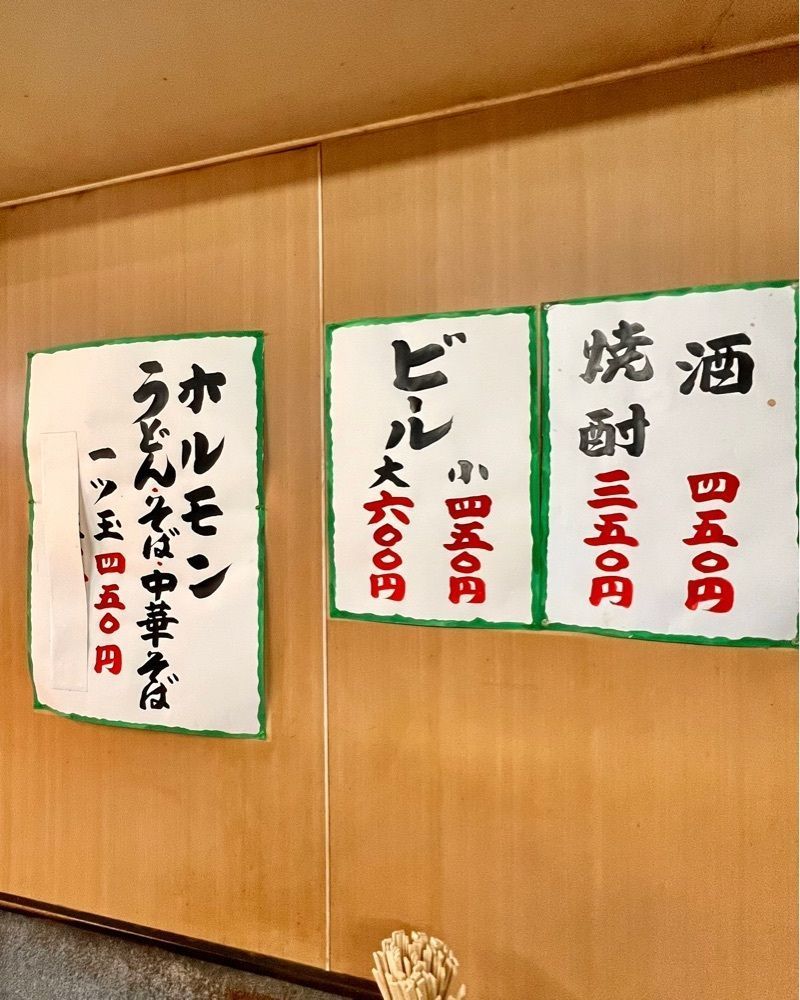 酒 四五〇円
焼酎 三五〇円
小 四五〇円
ビール 大 六〇〇円
ホルモン
うどん・そば・中華そば
一ツ玉 四五〇円